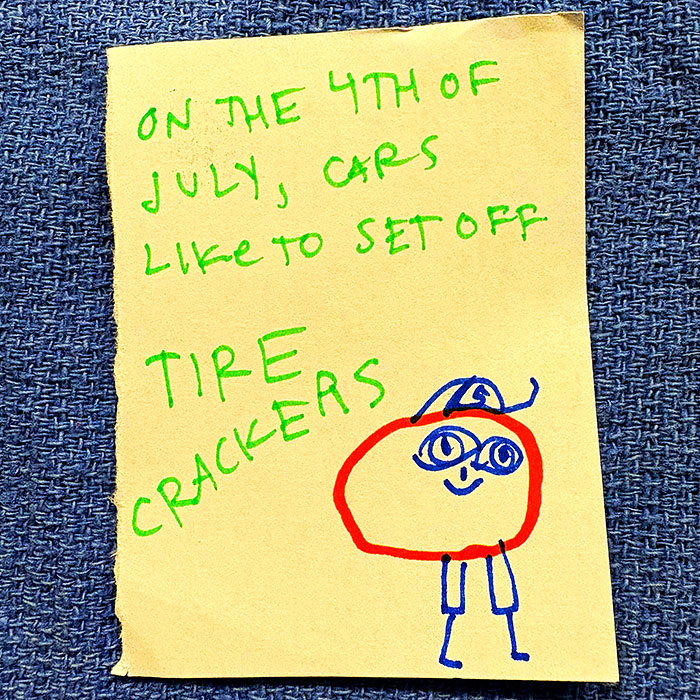 ON THE 4TH OF
JULY, CARS
LIKe TO SET OFF
TIRE
CRACKERS